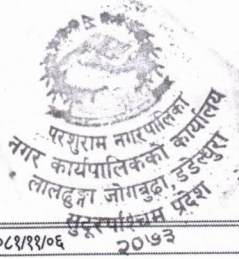 परशुराम नगरपालिका
नगर कार्यपालिकाको कार्यालय
लालढुङ्गा जोगबुढा, डडेल्धुरा
सुदूरपश्चिम प्रदेश
०८१/११/०६
२०७३